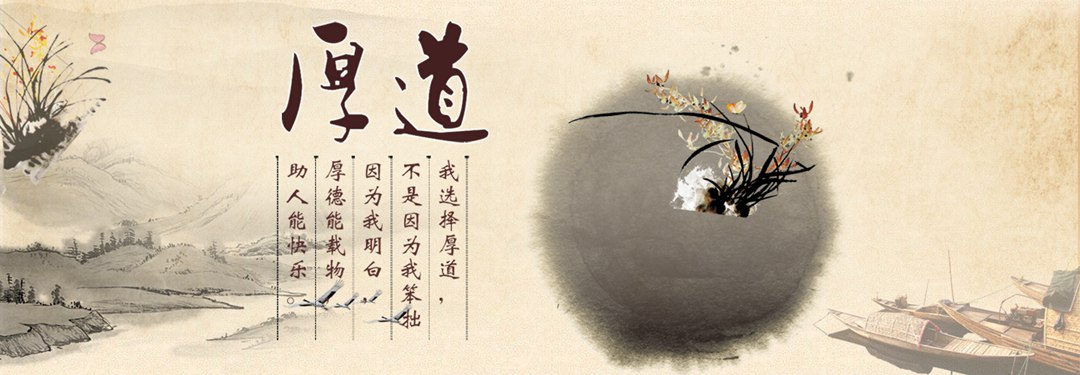 厚道
我选择厚道，
不是因为我笨拙
因为我明白，
厚德能载物
助人能快乐。